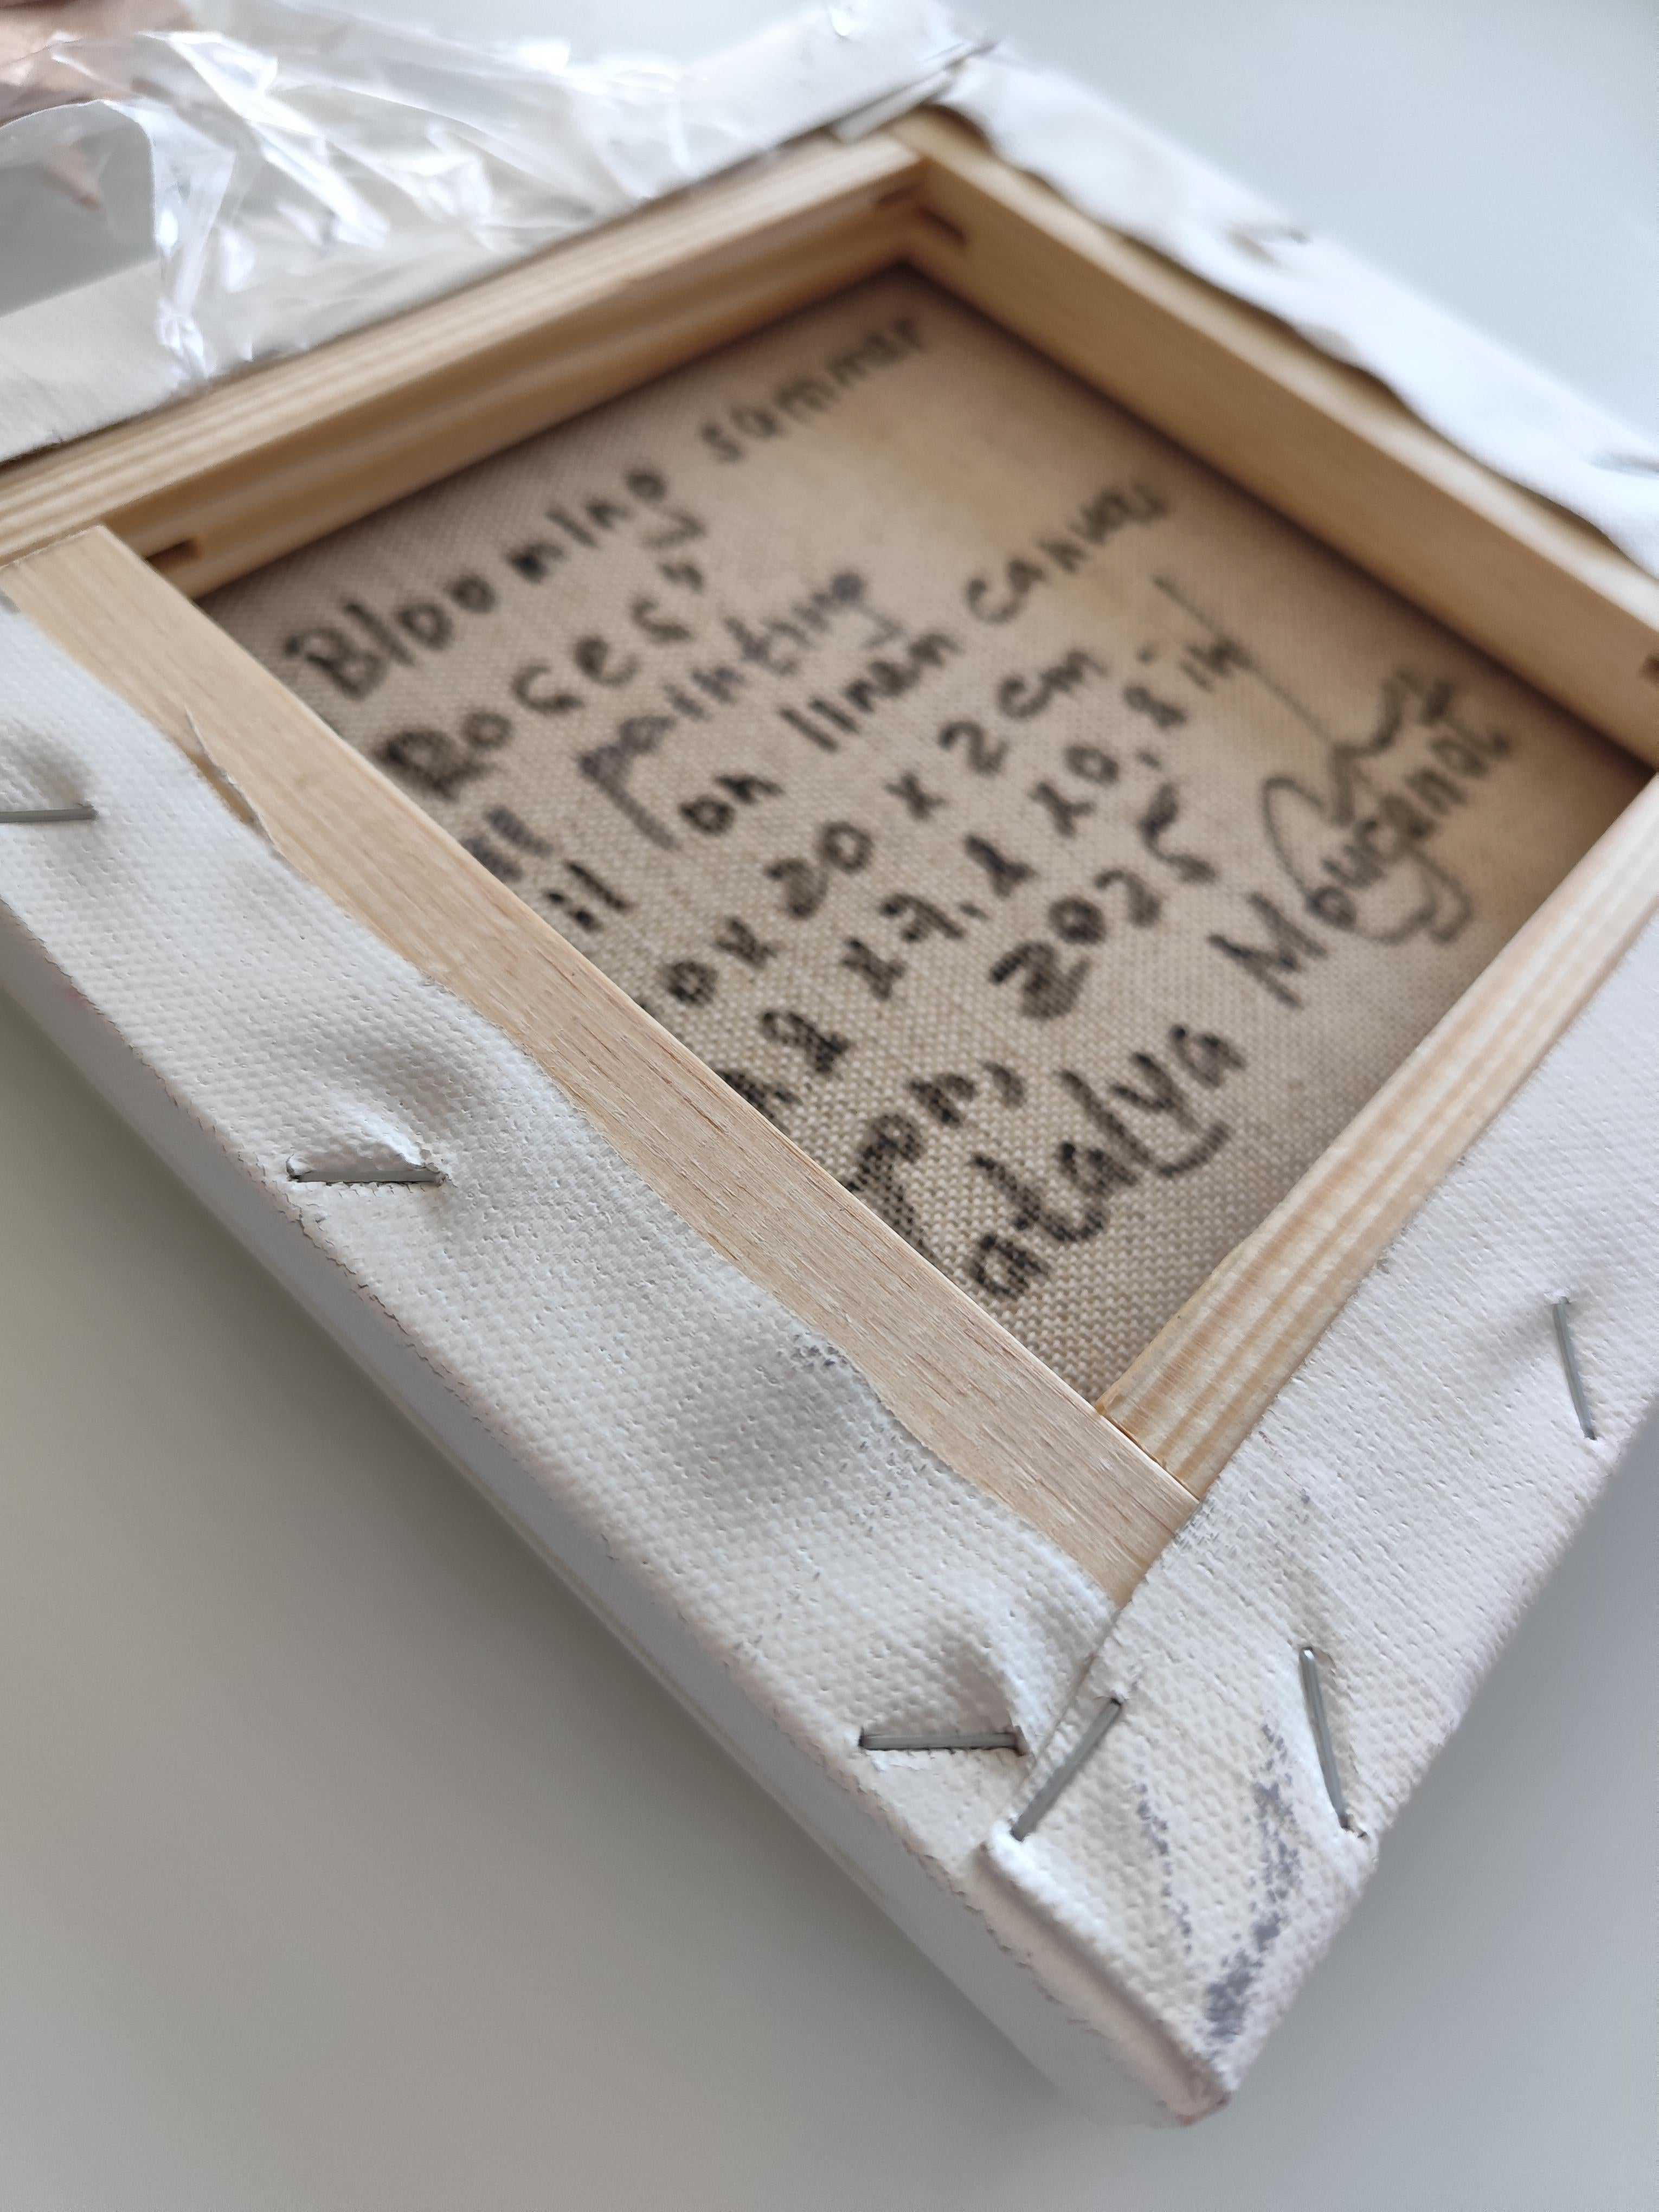 Blooming summer
Roses"
painting
il on linen canvas
0 x 20 x 2 cm
x 7,8 x 0,8 in
2025
by
atalya Mougenot